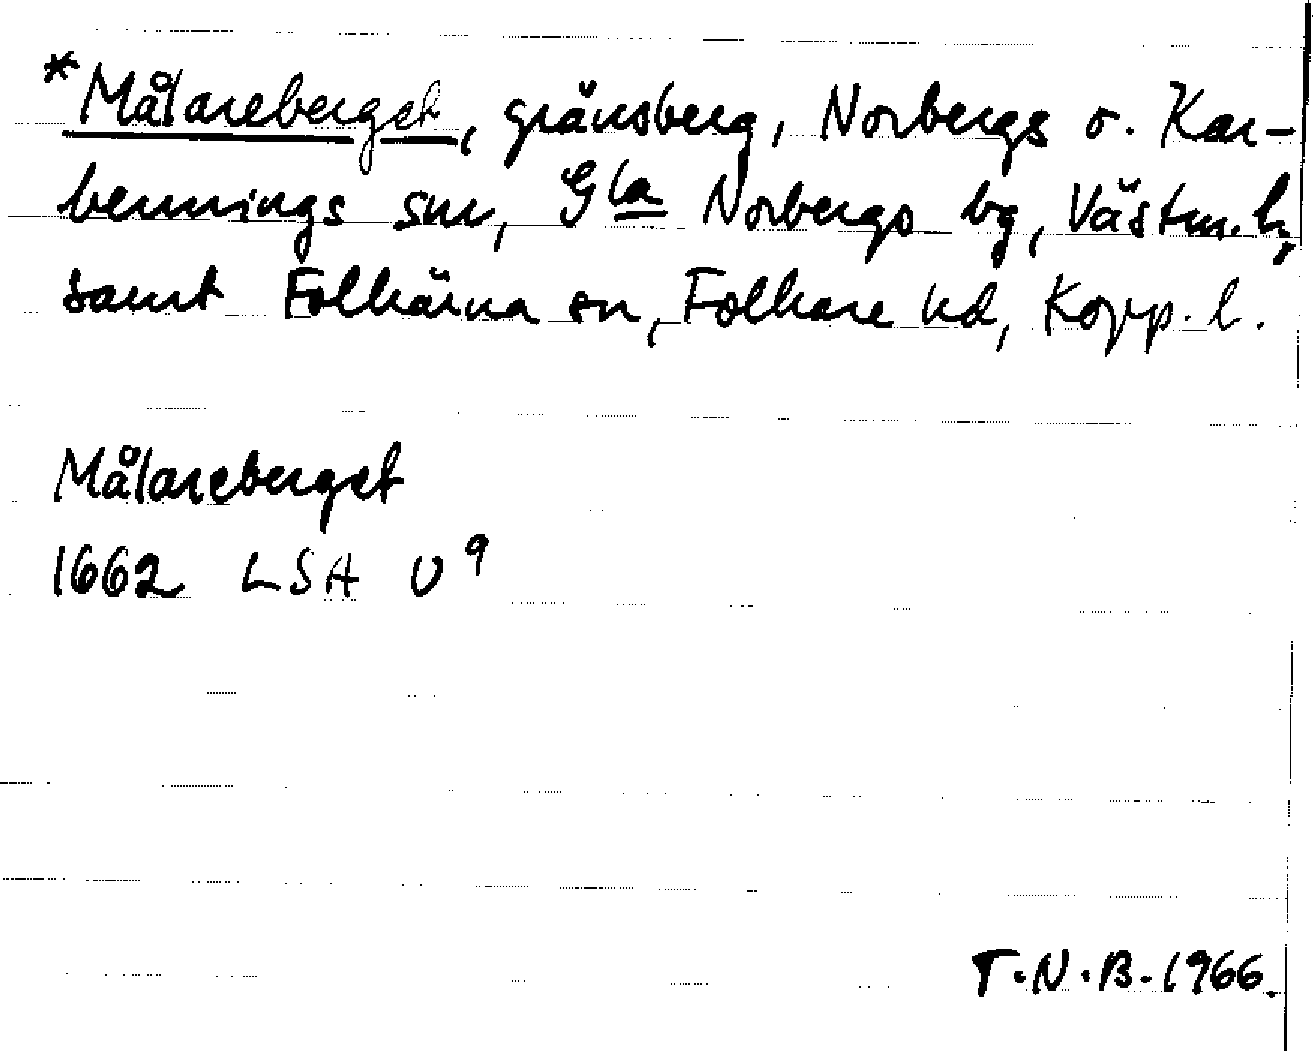 *Målareberget, gränsberg, Norbergs o. Kar-
bennings snr, Gla Norbergs bg, Västm. l.,
samt Folkärna sn, Folkare hd, Kopp. l.
Målareberget
1662 LSA U9
T.N.B. 1966.